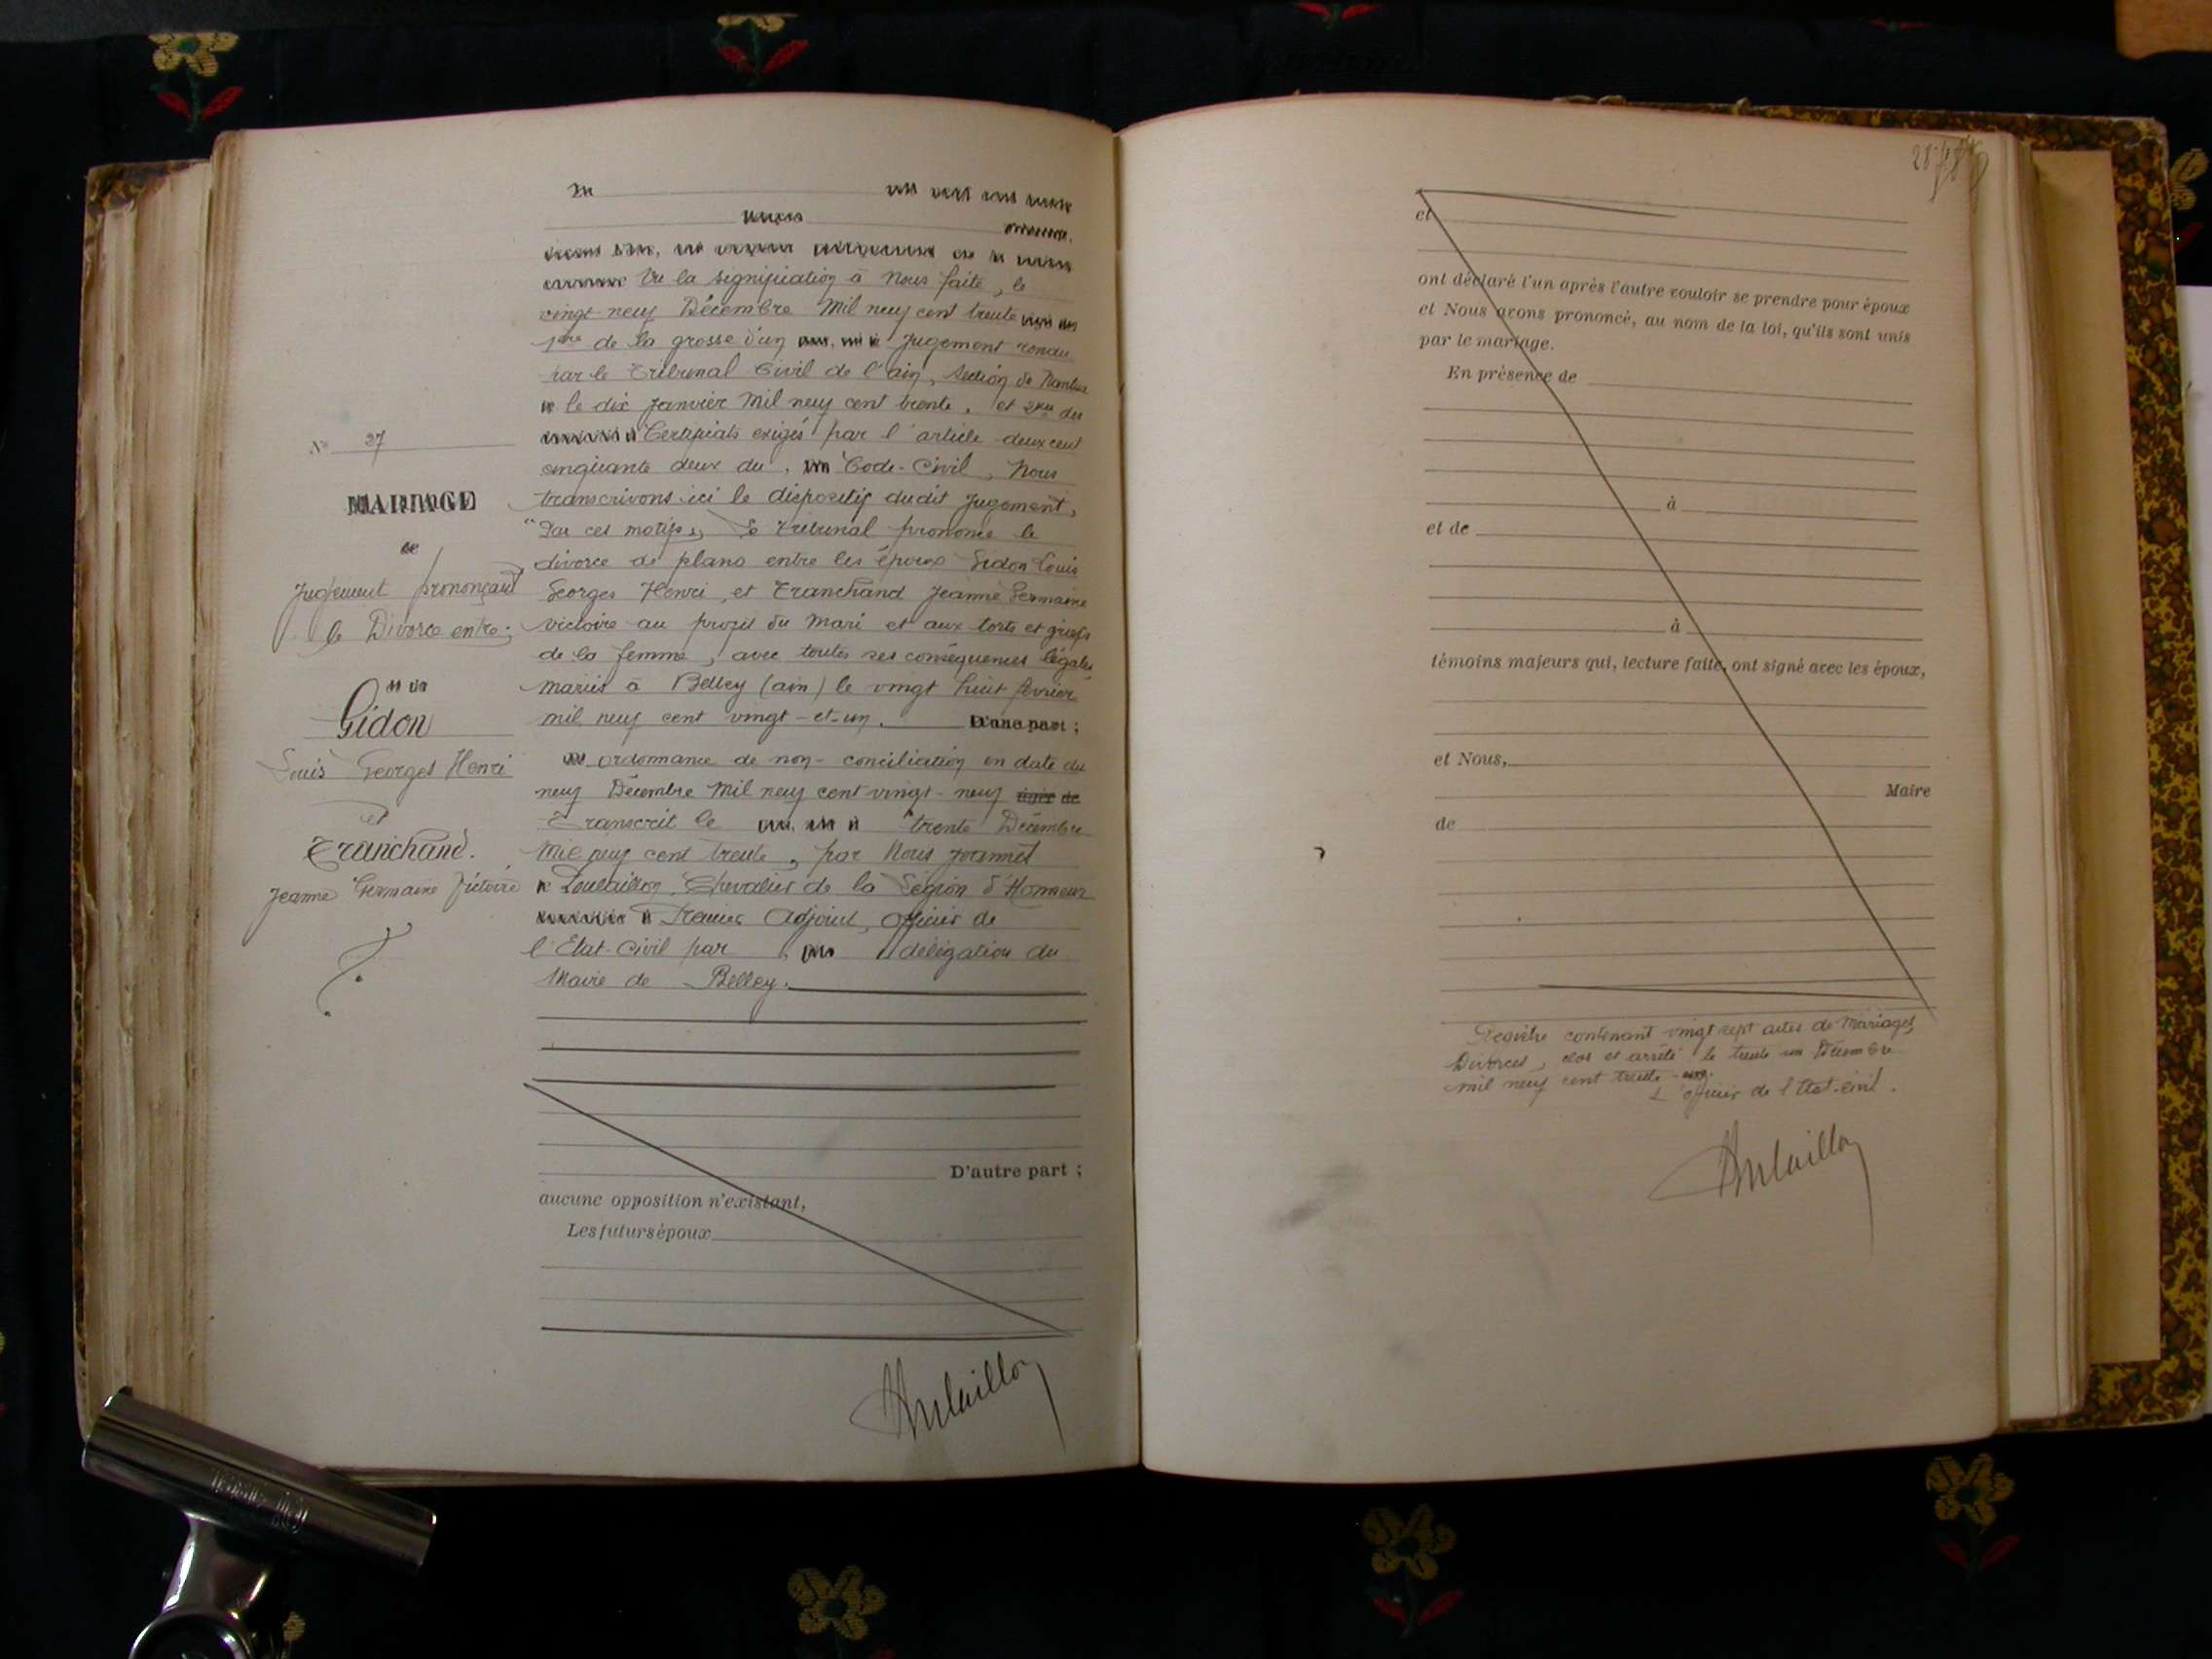 N° 27
MARIAGE
de
Jugement prononçant
le Divorce entre :
Gidon
Louis Georges Henri
et
Tranchand.
Jeanne Germaine Victoire
Vu la signification à Nous faite, le
vingt-neuf Décembre Mil neuf cent trente
1ère de la grosse d'un Jugement rendu
par le Tribunal Civil de l'ain, Section de Nantua
le dix Janvier Mil neuf cent trente, et 2me du
Certificats exigés par l'article deux cent
cinquante deux du Code-Civil, Nous
transcrivons ici le dispositif dudit Jugement,
"Par ces motifs, Le Tribunal prononce le
divorce de plano entre les époux Gidon Louis
Georges Henri, et Tranchand Jeanne Germaine
Victoire au profit du Mari et aux torts et griefs
de la femme, avec toutes ses conséquences légales,
Mariés à Belley (ain) le vingt huit février
mil neuf cent vingt-et-un. D'une part ;
ordonnance de non-conciliation en date du
neuf Décembre Mil neuf cent vingt-neuf âgée de
Transcrit le trente Décembre
Mil neuf cent trente, par Nous
Chevalier de la Légion d'Honneur
Premier Adjoint, officier de
l'Etat-Civil par délégation du
Maire de Belley.
D'autre part ;
aucune opposition n'existant,
Les futurs époux
28
et
ont déclaré l'un après l'autre vouloir se prendre pour époux
et Nous avons prononcé, au nom de la loi, qu'ils sont unis
par le mariage.
En présence de
à
et de
à
témoins majeurs qui, lecture faite, ont signé avec les époux,
et Nous,
Maire
de
Registre contenant vingt sept actes de Mariages,
Divorces, clos et arrêté le trente un Décembre
mil neuf cent trente
L'officier de l'Etat-civil.